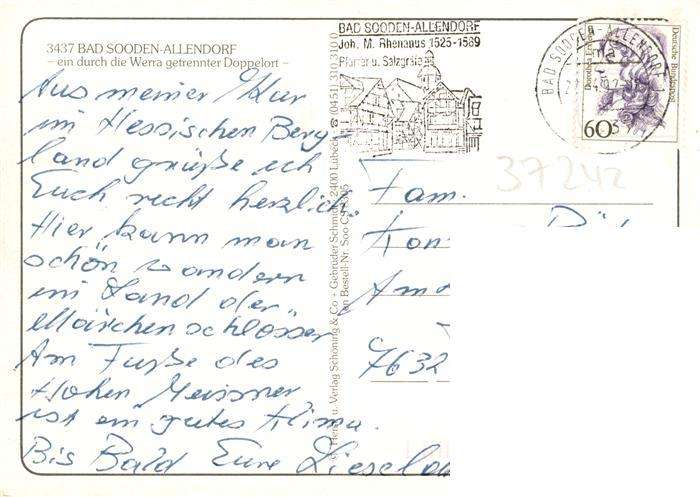 3437 BAD SOODEN-ALLENDORF
– ein durch die Werra getrennter Doppelort –
Aus meiner Kur
im Hessischen Berg-
land grüße ich
Euch recht herzlich.
Hier kann man
schön wandern
im Land der
Märchenschlösser
Am Fuße des
Hohen Meissner
ist ein gutes Klima.
Bis Bald Eure
BAD SOODEN-ALLENDORF
Joh. M. Rhenanus 1525-1589
Pfarrer u. Salzgräfe
BAD SOODEN-ALLENDORF
Deutsche Bundespost
60
37242
Fam.
7632
Verlag Schöning & Co + Gebrüder Schmidt, 2400 Lübeck
Bestell-Nr. Soo